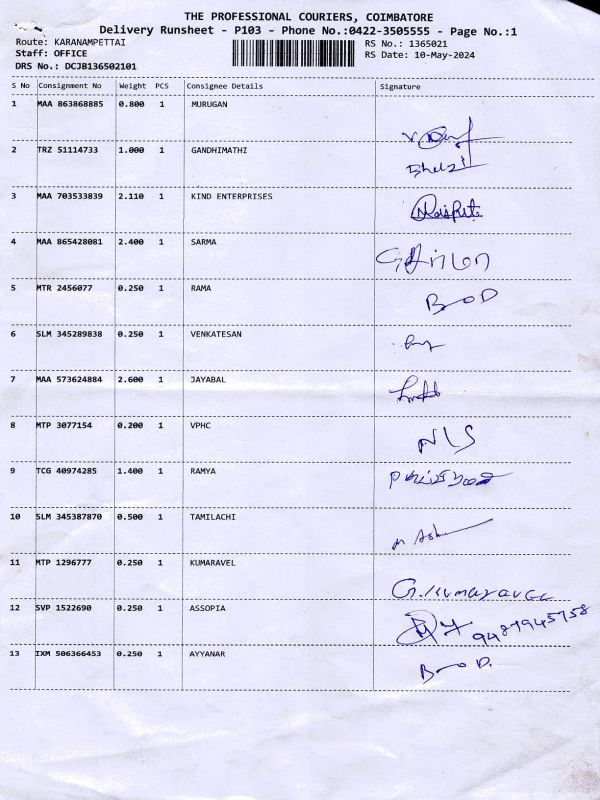 THE PROFESSIONAL COURIERS, COIMBATORE
Delivery Runsheet - P103 - Phone No.:0422-3505555 - Page No.:1
Route: KARANAMPETTAI RS No.: 1365021
Staff: OFFICE RS Date: 10-May-2024
DRS No.: DCJB136502101
S No Consignment No Weight PCS Consignee Details Signature
1 MAA 863868885 0.800 1 MURUGAN
2 TRZ 51114733 1.000 1 GANDHIMATHI
3 MAA 703533839 2.110 1 KIND ENTERPRISES
4 MAA 865428081 2.400 1 SARMA
5 MTR 2456077 0.250 1 RAMA
6 SLM 345289838 0.250 1 VENKATESAN
7 MAA 573624884 2.600 1 JAYABAL
8 MTP 3077154 0.200 1 VPHC
NLS
9 TCG 40974285 1.400 1 RAMYA
10 SLM 345387870 0.500 1 TAMILACHI
11 MTP 1296777 0.250 1 KUMARAVEL
G.Kumaravel
12 SVP 1522690 0.250 1 ASSOPIA
9487945758
13 IXM 506366453 0.250 1 AYYANAR